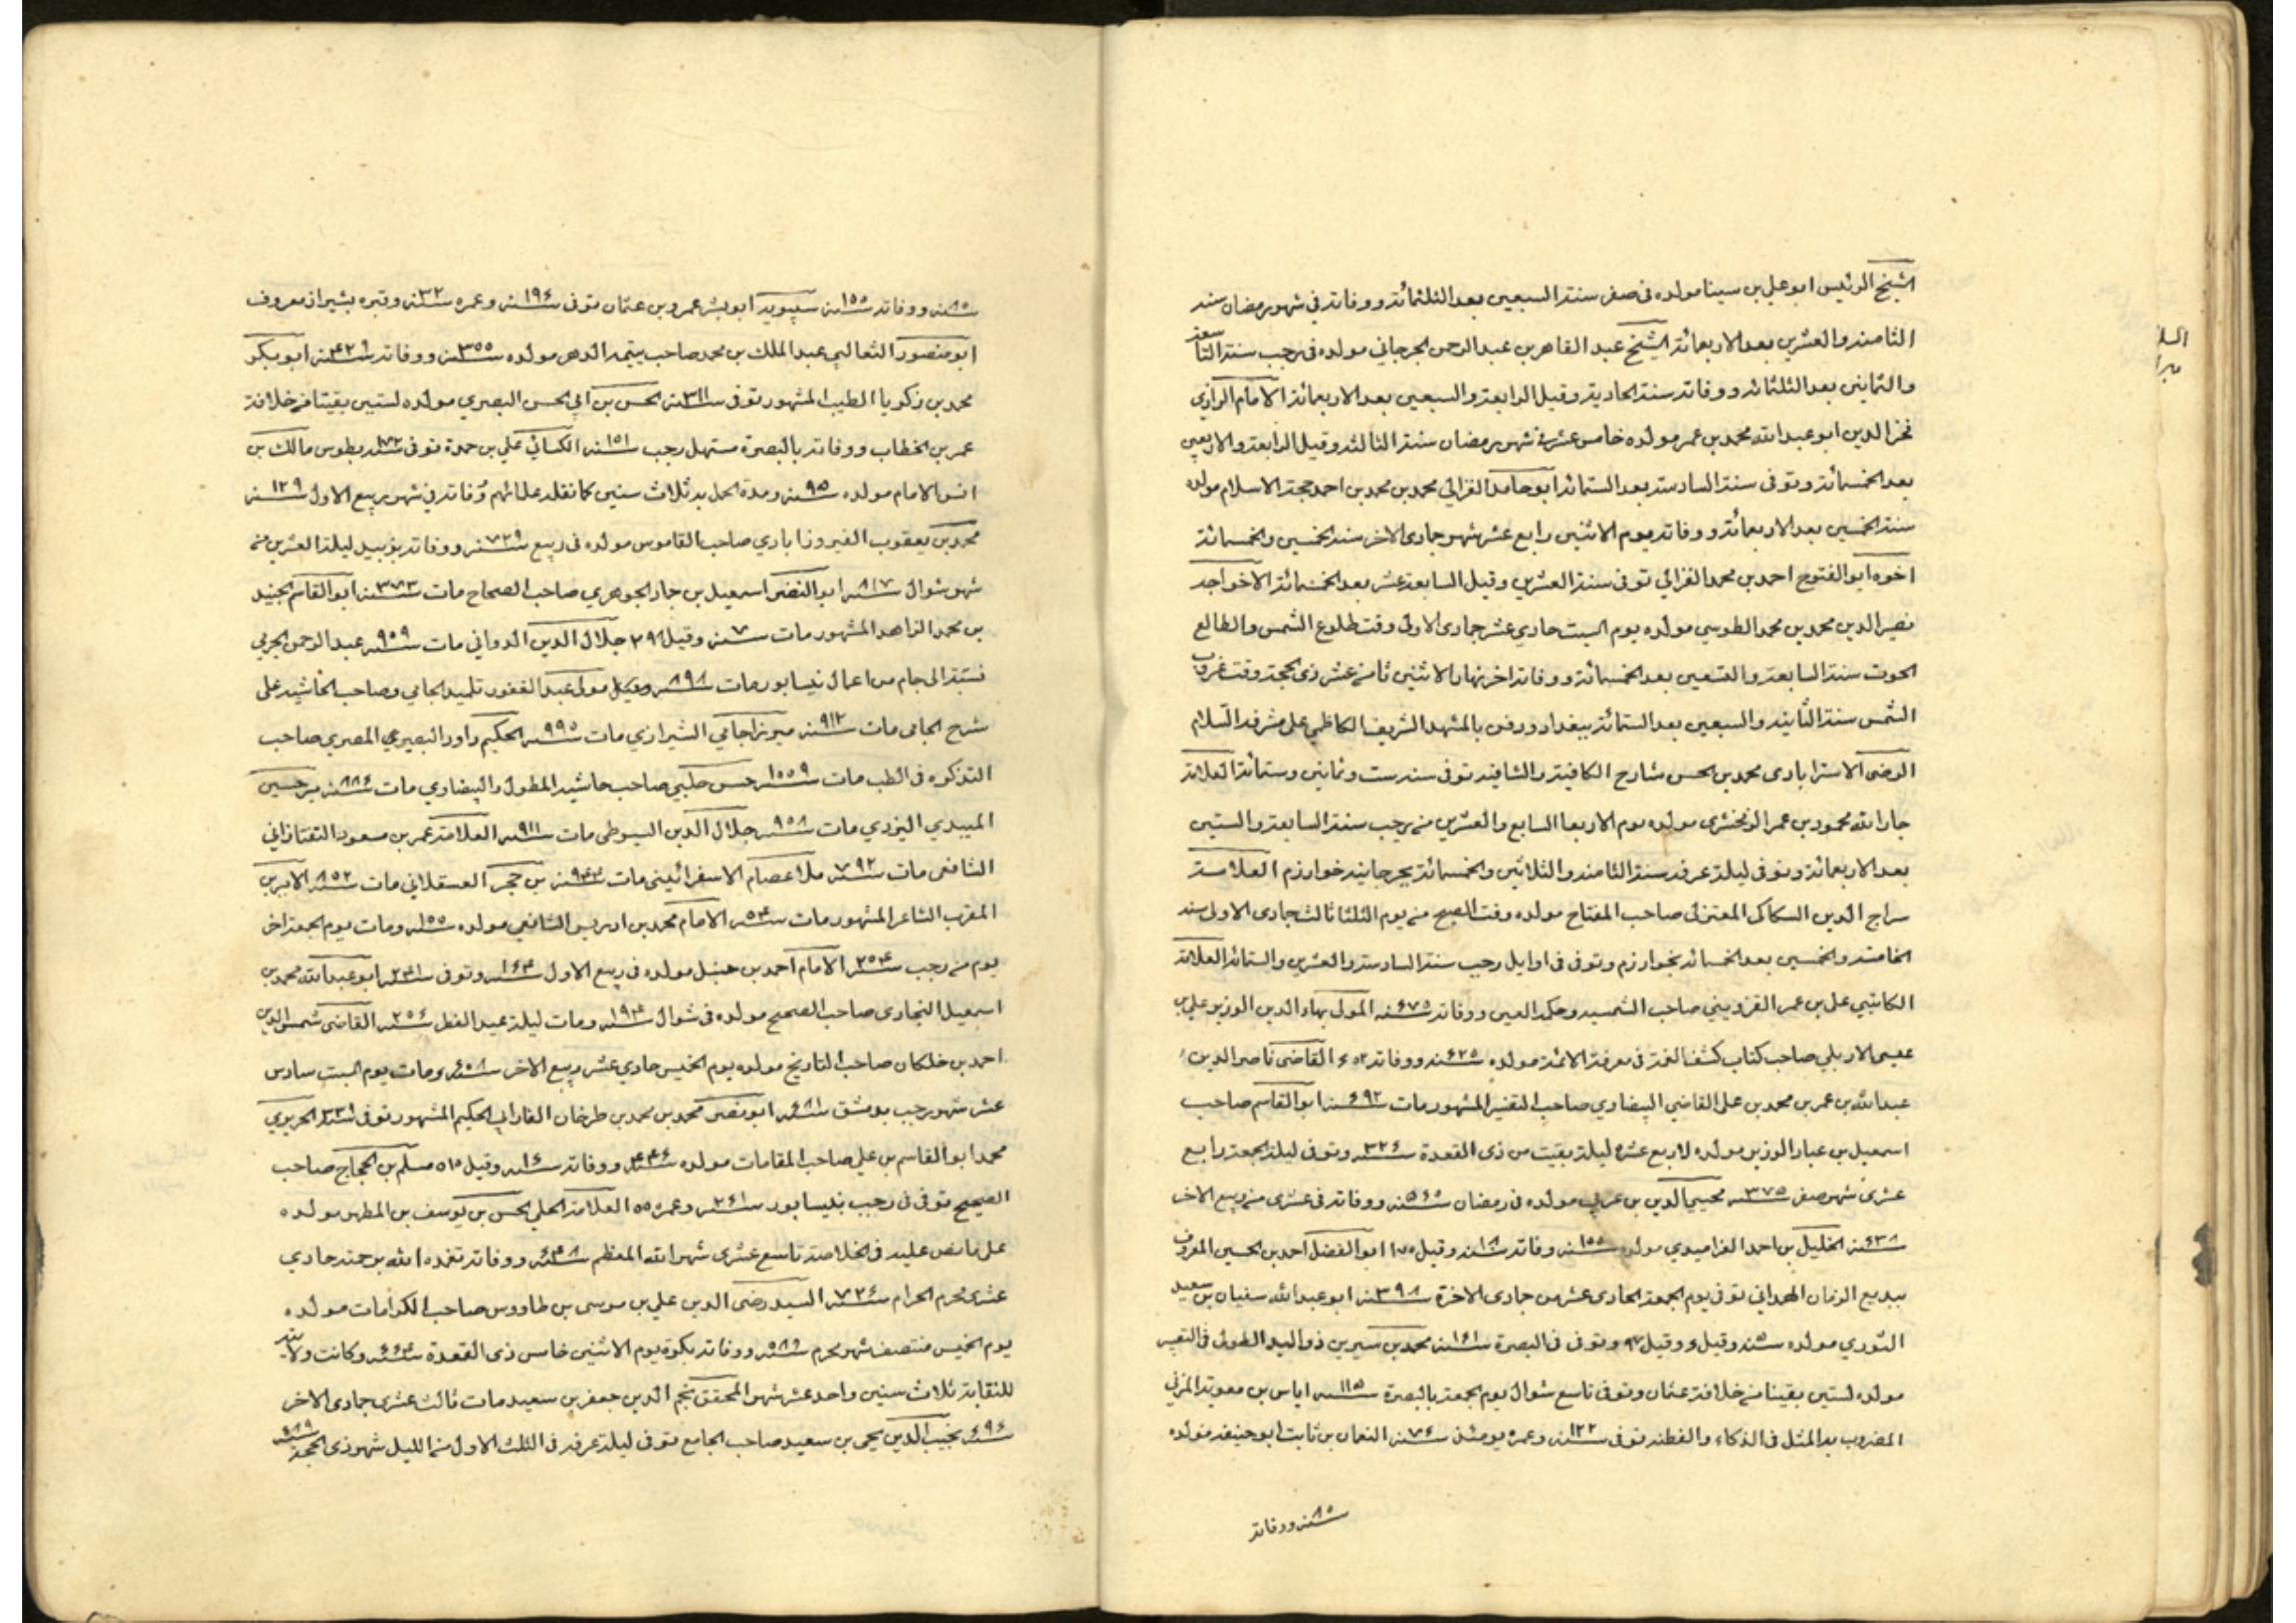 الشيخ الرئيس ابوعلي بن سينا مولده في صفر سنة السبعين بعد الثلثمائة ووفاته في شهر رمضان سنه
الثامنة والعشرين بعد الاربعمائة الشيخ عبد القاهر بن عبد الرحمن الجرجاني مولده في رجب سنة التاسعة
والثمانين بعد الثلثمائه ووفاته سنة الحادية وقيل الرابعة والسبعين بعد الاربعمائة الامام الرازي
فخر الدين ابو عبد الله محمد بن عمر مولده خامس عشر في شهر رمضان سنة الثالثة وقيل الرابعة والاربعين
بعد الخمسمائة وتوفى سنة السادسة بعد الستمائة ابو حامد الغزالي محمد بن محمد بن احمد حجة الاسلام مولده
سنة الخمسين بعد الاربعمائة ووفاته يوم الاثنين رابع عشر شهر جمادى الاخر سنة الخمسين والخمسمائة
اخوه ابو الفتوح احمد بن محمد الغزالي توفى سنة العشرين وقيل السابعة عشر بعد الخمسمائة الاخواجه
نصير الدين محمد بن محمد الطوسي مولده يوم السبت حادي عشر جمادى الاولى وقت طلوع الشمس والطالع
الحوت سنة السابعة والتسعين بعد الخمسمائة ووفاته اخر نهار الاثنين ثامن عشر ذى الحجة وقت غروب
الشمس سنة الثانية والسبعين بعد الستمائة ببغداد ودفن بالمشهد الشريف الكاظمي على مشرفه السلام
الرضى الاسترابادى محمد بن الحسن شارح الكافية والشافيه توفى سنة ست وثمانين وستمائة العلامة
جار الله محمود بن عمر الزمخشرى مولده يوم الاربعا السابع والعشرين من رجب سنة السابعة والستين
بعد الاربعمائة وتوفى ليلة عرفه سنة الثامنة والثلاثين والخمسمائة بجرجانية خوارزم العلامة
سراج الدين السكاكى المعتزلى صاحب المفتاح مولده وقت الصبح من يوم الثلثا ثالث جمادى الاولى سنه
الخامسة والخمسين بعد الخمسمائه بخوارزم وتوفى فى اوايل رجب سنة السادسة والعشرين والستمائة العلامة
الكاتبي على بن عمر القزويني صاحب الشمسيه وحكمة العين ووفاته سنة ٦٧٥ المولى بهاء الدين الوزير علي بن
عيسى الاربلي صاحب كتاب كشف الغمة فى معرفة الائمة مولده سنة ٦٢٥ ووفاته القاضى ناصر الدين
عبد الله بن عمر بن محمد بن على القاضى البيضاوي صاحب التفسير المشهور مات سنة ٦٩٢ ابو القاسم صاحب
اسمعيل بن عباد الوزير مولده لاربع عشره ليلة بقيت من ذى القعدة سنة ٣٢٤ وتوفى ليلة الجمعة رابع
عشرى شهر صفر سنة ٣٧٥ محيي الدين بن عربي مولده فى رمضان سنة ٥٦٥ ووفاته فى عشرى من ربيع الاخر
سنة ٦٣٨ الخليل بن احمد الفراهيدي مولده سنة ١٥٥ وفاته وقيل ابو الفضل احمد بن الحسين المعروف
ببديع الزمان الهمداني توفى يوم الجمعة الحادى عشر من جمادى الاخرة سنة ٣٩٨ ابو عبد الله سفيان بن سعيد
الثوري مولده سنة وقيل وقيل ٩٧ وتوفى فى البصرة سنة ١٦١ محمد بن سيرين ذو اليد الطولى فى التعبير
مولده لسنتين بقيتا من خلافة عثمان وتوفى تاسع شوال يوم الجمعة بالبصرة سنة ١١٥ اياس بن معوية المزني
المضروب به المثل فى الذكاء والفطنه توفى سنة ١٢٢ وعمره يومئذ سنة ٧٤ النعمان بن ثابت ابو حنيفه مولده
سنة ٨٥ ووفاته
سنة ٨٥ ووفاته سنة ١٥٥ سيبويه ابو بشر عمرو بن عثمان توفى سنة ١٩٤ وعمره سنة ٣٢ وقبره بشيراز معروف
ابو منصور الثعالبي عبد الملك بن محمد صاحب يتيمة الدهر مولده سنة ٣٥٥ ووفاته سنة ٤٢٩ ابو بكر
محمد بن زكريا الطبيب المشهور توفى سنة ٣١١ الحسن بن ابي الحسن البصري مولده لسنتين بقيتا من خلافة
عمر بن الخطاب ووفاته بالبصرة مستهل رجب سنة ١٥١ الكسائي علي بن حمزة توفى بطوس مالك بن
انس الامام مولده سنة ٩٥ ومدة الحمل به ثلاث سنين كما نقله علمائهم وفاته في شهر ربيع الاول سنة ١٢٩
محمد بن يعقوب الفيروزابادي صاحب القاموس مولده فى ربيع سنة ٧٢٩ ووفاته بزبيد ليلة العشرين من
شهر شوال سنة ٨١٧ ابو النضر اسمعيل بن حماد الجوهري صاحب الصحاح مات سنة ٣٧٣ ابو القاسم الجنيد
بن محمد الزاهد المشهور مات سنة ٧ وقيل ٢٩٨ جلال الدين الدواني مات سنة ٩٥٩ عبد الرحمن الجامي
نسبة الى جام من اعمال نيسابور مات سنة ٨٩٨ مولى عبد الغفور تلميذ الجامي وصاحب الحاشيه على
شرح الجامى مات سنة ٩١٢ ميرزا جامي الشيرازي مات سنة ٩٩٥ الحكيم داود البصيري المصري صاحب
التذكره فى الطب مات سنة ١٥٥٩ حسن جلبي صاحب حاشية المطول والبيضاوي مات سنة ٨٨٤ مير حسين
الميبدي اليزدي مات سنة ٩٥٨ جلال الدين السيوطى مات سنة ٩١١ العلامة عمر بن مسعود التفتازاني
الشافعى مات سنة ٧٩٢ ملا عصام الاسفرائيني مات سنة ٩٤٣ بن حجر العسقلاني مات سنة ٨٥٢ الامير بن
المقرب الشاعر المشهور مات الامام محمد بن ادريس الشافعي مولده سنة ١٥٥ ومات يوم الجمعة اخر
يوم من رجب سنة ٢٥٤ الامام احمد بن حنبل مولده فى ربيع الاول سنة ١٦٤ وتوفى سنة ٢٤١ ابو عبد الله محمد بن
اسمعيل البخارى صاحب الصحيح مولده فى شوال سنة ١٩٤ ومات ليلة عيد الفطر سنة ٢٥٦ القاضى شمس الدين
احمد بن خلكان صاحب التاريخ مولده يوم الخميس حادي عشر ربيع الاخر سنة ٦٠٨ ومات يوم السبت سادس
عشر شهر رجب بدمشق سنة ٦٨١ ابو نصر محمد بن محمد بن طرخان الفارابي الحكيم المشهور توفى الحريري
محمد ابو القاسم بن علي صاحب المقامات مولده سنة ٤٤٦ ووفاته وقيل ٥١٥ مسلم بن الحجاج صاحب
الصحيح توفى فى رجب بنيسابور سنة ٢٦١ وعمره ٥٥ العلامة الحلي الحسن بن يوسف بن المطهر مولده
على ما نص عليه فى الخلاصة تاسع عشرى شهر الله المعظم سنة ٦٤٨ ووفاته تغمده الله برحمته حادي
عشرى محرم الحرام سنة ٧٢٦ السيد رضى الدين علي بن موسى بن طاووس صاحب الكرامات مولده
يوم الخميس منتصف شهر محرم سنة ٥٨٩ ووفاته بكرة يوم الاثنين خامس ذى القعدة سنة ٦٦٤ وكانت ولايته
للنقابة ثلاث سنين واحد عشر شهر المحقق نجم الدين جعفر بن سعيد مات ثالث عشرى جمادى الاخر
نجيب الدين يحيى بن سعيد صاحب الجامع توفى ليلة عرفه فى الثلث الاول من الليل شهر ذى الحجة